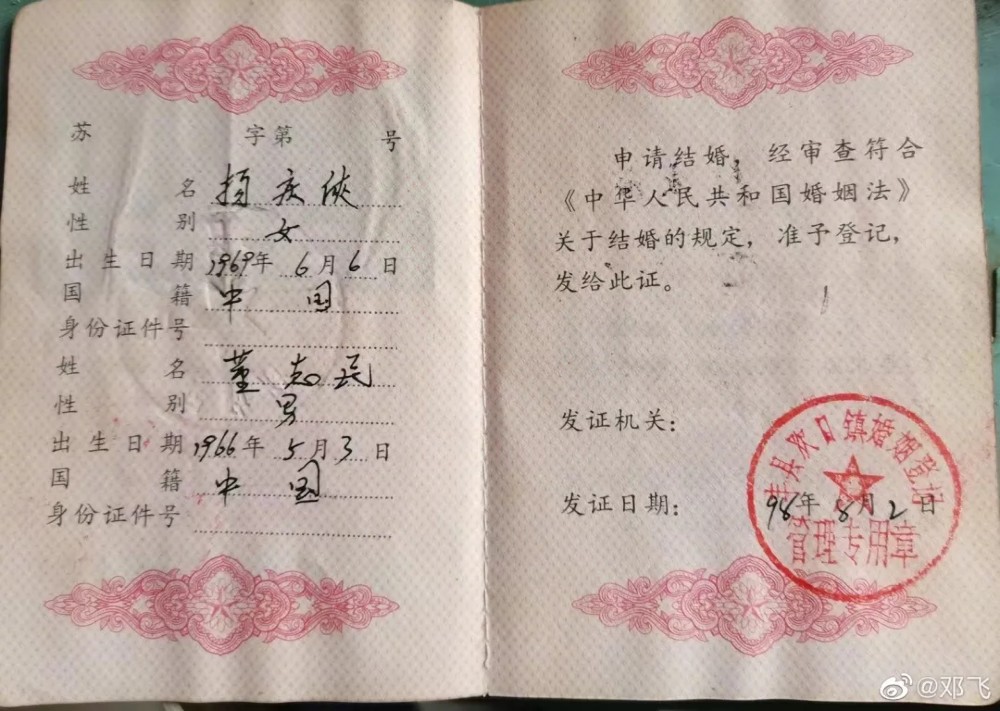 苏 字第 号
姓名 庆俠
性别 女
出生日期 1969年 6月6日
国籍 中国
身份证件号
姓名 董志民
性别 男
出生日期 1966年 5月3日
国籍 中国
身份证件号
申请结婚，经审查符合
《中华人民共和国婚姻法》
关于结婚的规定，准予登记，
发给此证。
发证机关：
丰县欢口镇婚姻登记
发证日期： 98年8月2日
管理专用章
@邓飞